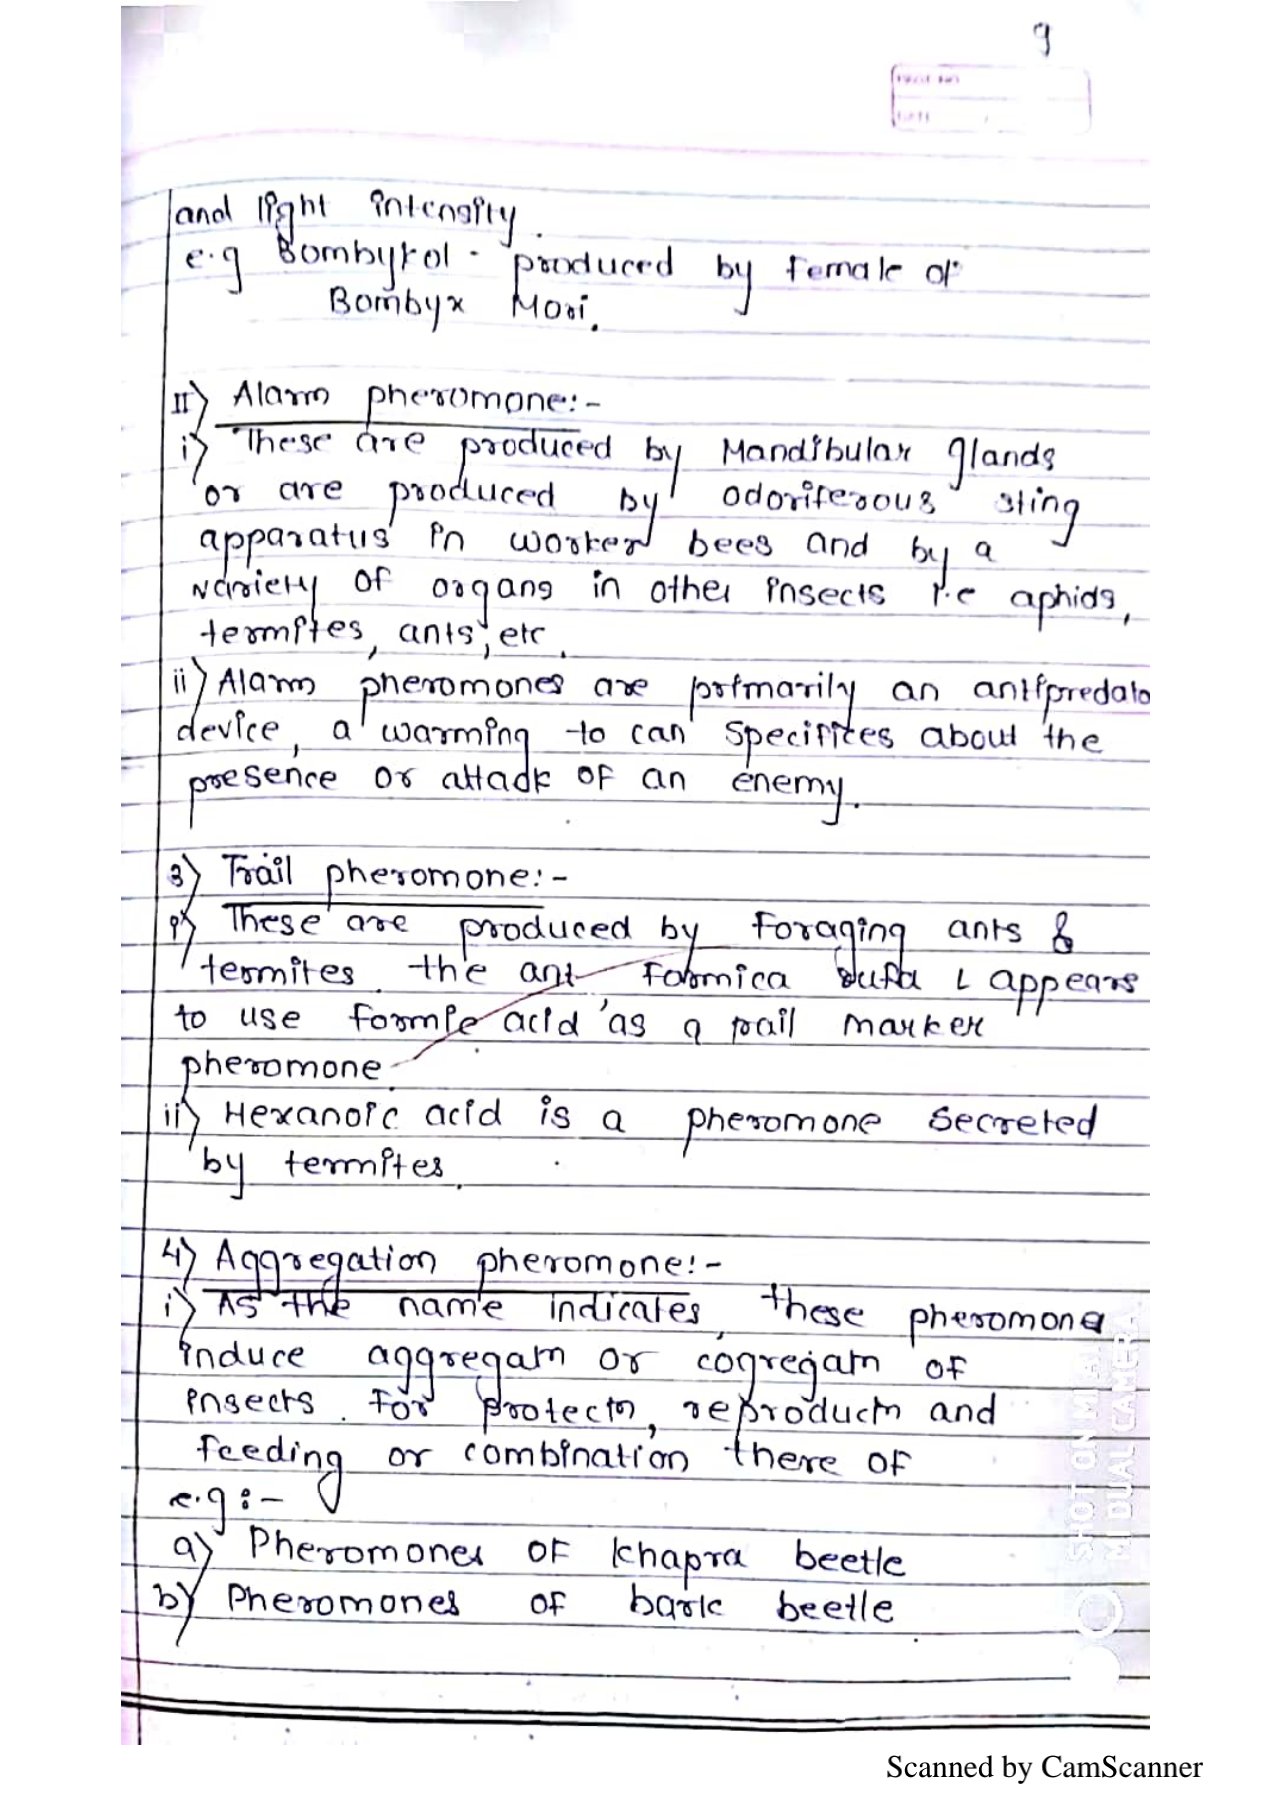 9
and light intensity.
e.g Bombykol - produced by female of
Bombyx Mori.
II) Alarm pheromone:-
i) These are produced by Mandibular glands
or are produced by odoriferous sting
apparatus in worker bees and by a
variety of organs in other insects i.e aphids,
termites, ants, etc.
ii) Alarm pheromones are primarily an antipredato
device, a warming to can specifices about the
presence or attack of an enemy.
3) Trail pheromone:-
i) These are produced by foraging ants &
termites. the ant Formica rufa L appears
to use formic acid as a rail marker
pheromone.
ii) Hexanoic acid is a pheromone secreted
by termites.
4) Aggregation pheromone:-
i) As the name indicates, these pheromone
induce aggregatn or cogregatn of
insects. for protectn, reproductn and
feeding or combination there of
e.g:-
a) Pheromones of Khapra beetle
b) Pheromones of bark beetle
SHOT ON MI A1
MI DUAL CAMERA
Scanned by CamScanner